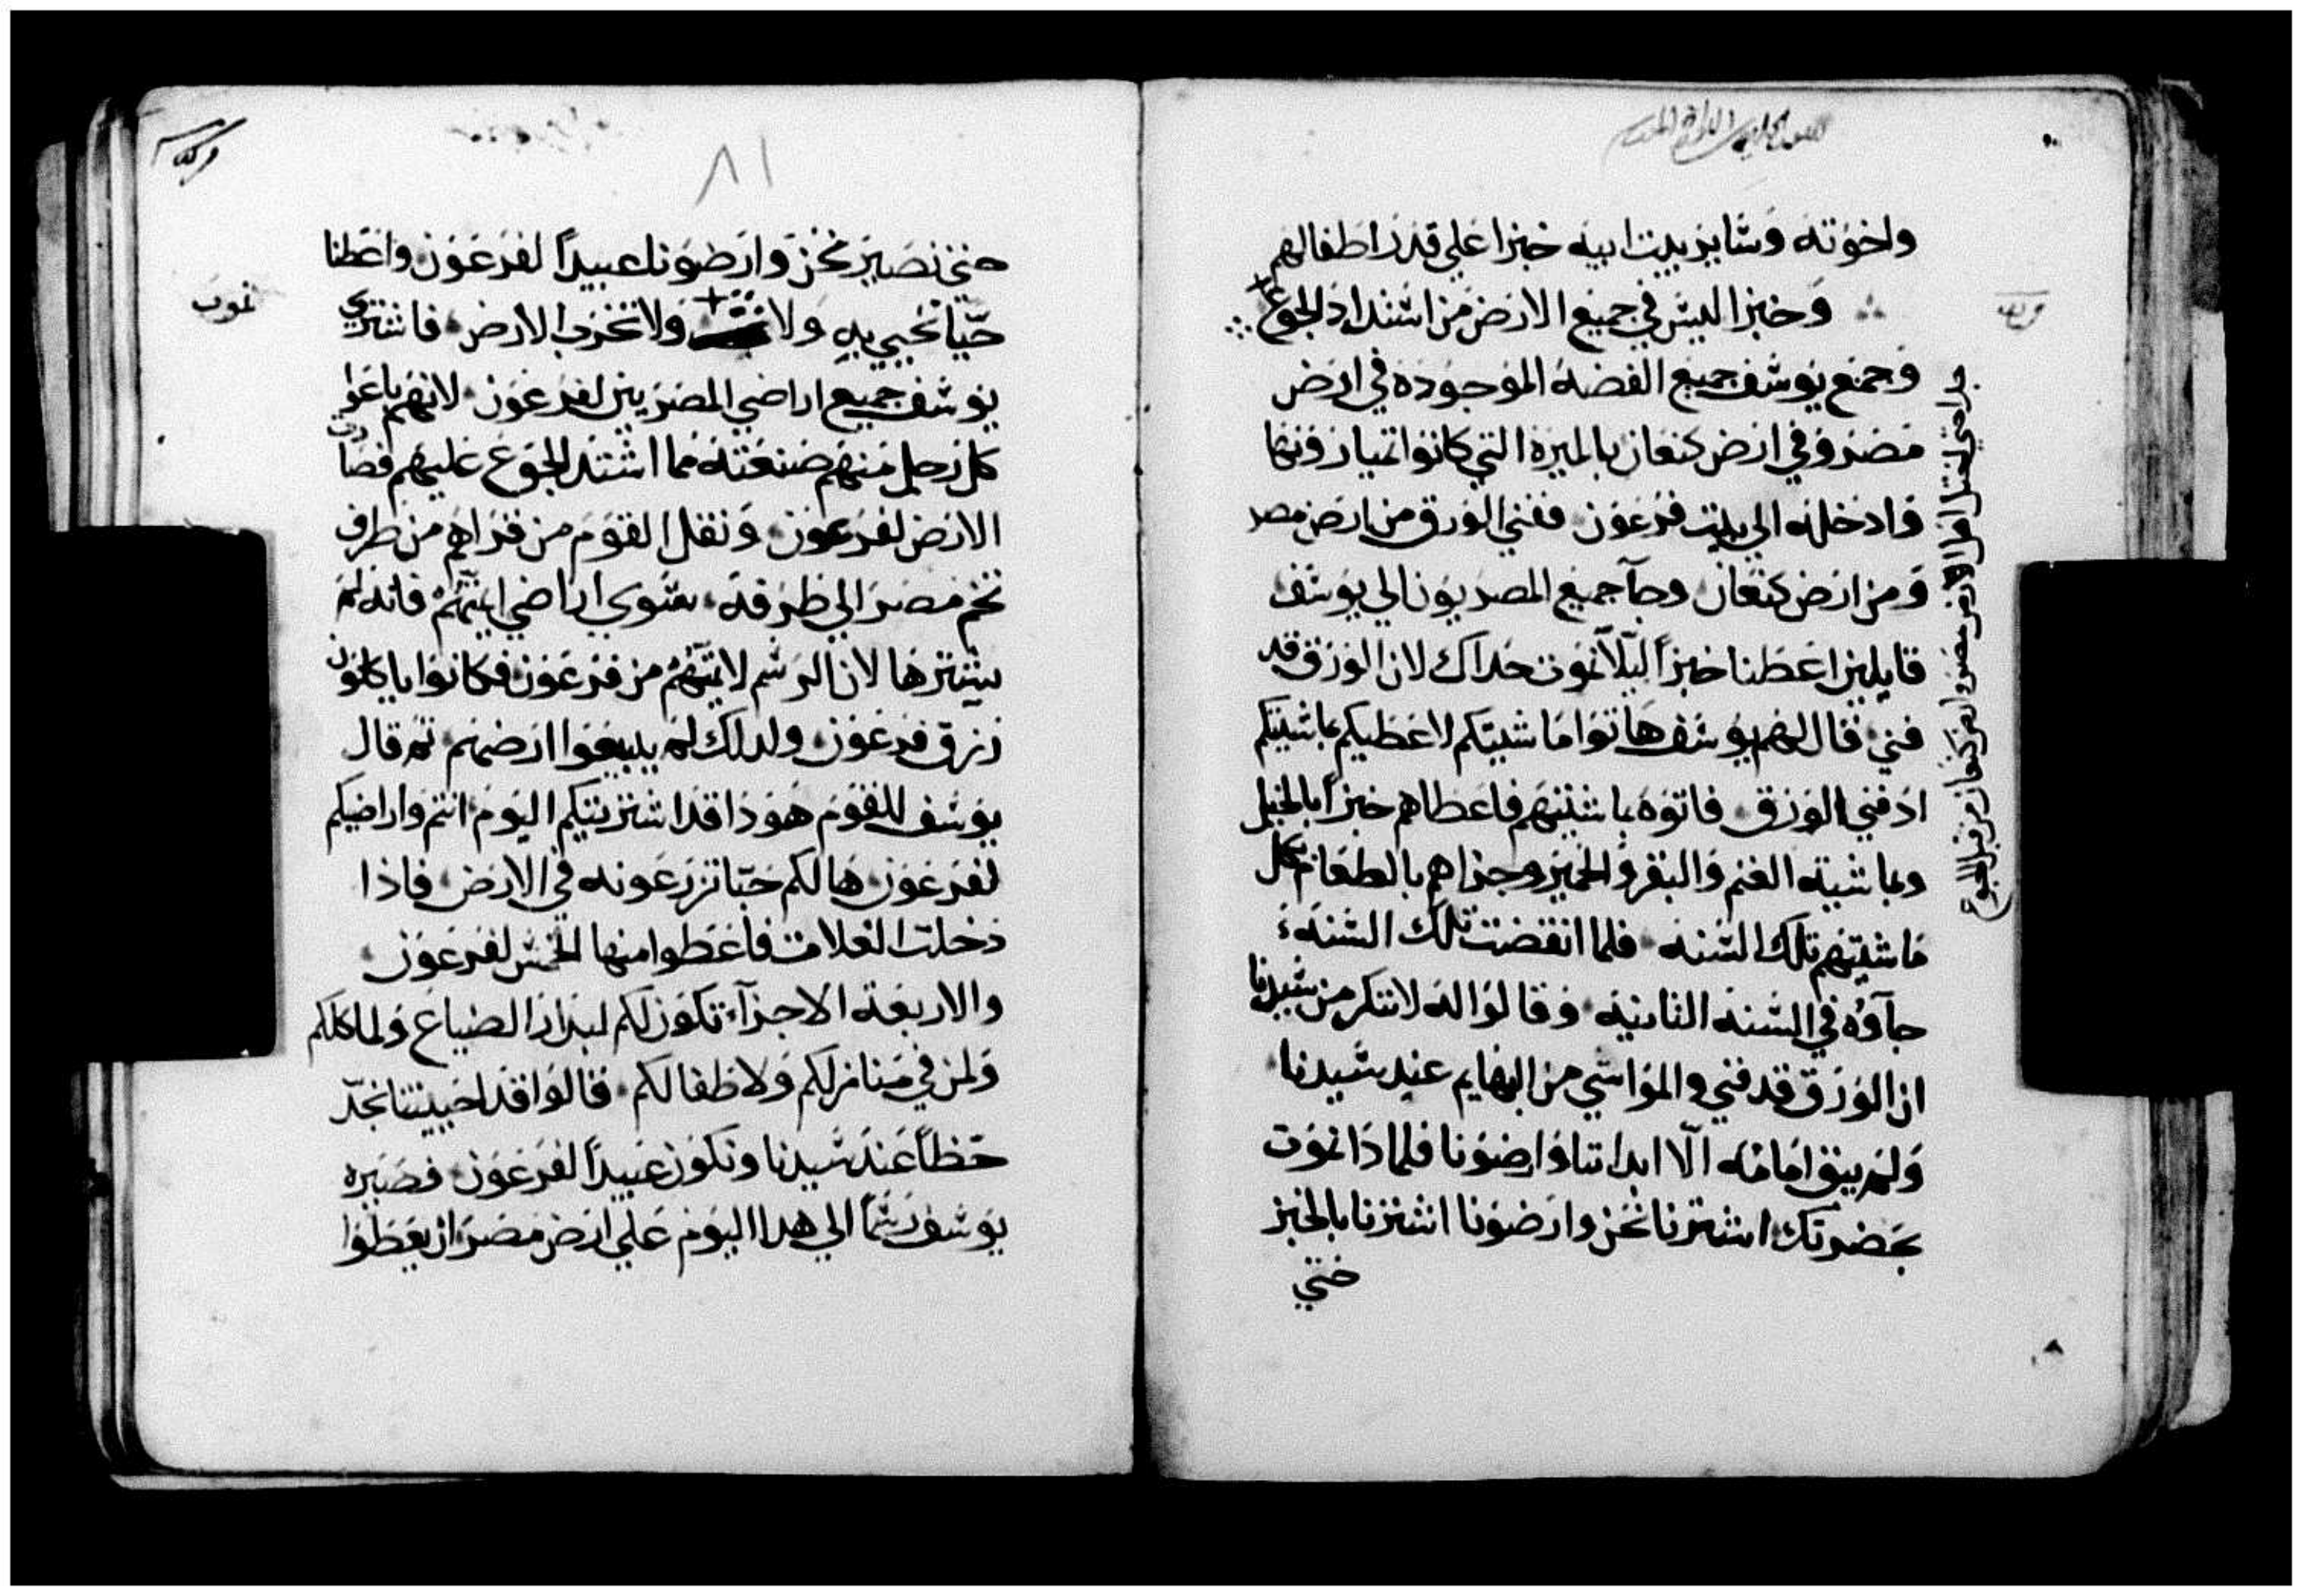 واخوته وساير بيت ابيه خبزا علي قدر اطفالهم
وخبزا ليس في جميع الارض من اشتداد الجوع
وجمع يوسف جميع الفضه الموجوده في ارض
مصر وفي ارض كنعان بالميرة التي كانوا تميارونها
وادخله الي بيت فرعون ففني الورق من ارض مصر
ومن ارض كنعان وجآ جميع المصريون الي يوسف
قايلين اعطنا خبزاً ليلاّ نموت حداك لان الورق قد
فني فقال لهم يوسف هاتوا ماشيتكم لاعطيكم بماشيتكم
اذ فني الورق فاتوه بماشيتهم فاعطاهم خبزاً بالخيل
وبماشية الغنم والبقر والحمير وجزاهم بالطعام بكل
ماشيتهم تلك السنه فلما انقضت تلك السنه
جآوه في السنه الثانيه وقالوا له لانتكر من سيدنا
ان الورق قد فني والمواشي من البهايم عند سيدنا
ولم يبق امامه الّا ابداننا وارضونا فلماذا نموت
بحضرتك اشترنا نحن وارضونا اشترنا بالخبز
حتي
٨١
حتي نصير نحن وارضونا عبيداً لفرعون واعطنا
حبّاً نحيي به ولا ولا تخرب الارض فاشتري
نموت
يوسف جميع اراضي المصريين لفرعون لانهم باعوا
كل رجل منهم ضيعته مما اشتد الجوع عليهم فصارت
الارض لفرعون ونقل القوم من قراهم من طرف
تخم مصر الي طرفه سوي اراضي ايمتهم فانه لم
يشترها لان الرسم لايمتهم من فرعون فكانوا ياكلون
رزق فرعون ولدلك لم يبيعوا ارضهم ثم قال
يوسف للقوم هوذا قد اشتريتكم اليوم انتم واراضيكم
لفرعون ها لكم حبّا تزرعونه في الارض فاذا
دخلت الغلات فاعطوا منها الخمس لفرعون
والاربعة الاجزآء تكون لكم لبذار الضياع ولماكلكم
ولمن في منازلكم ولاطفالكم فقالوا قد احييتنا نجد
حظاً عند سيدنا ونكون عبيداً لفرعون فصيره
يوسف رسماً الي هدا اليوم علي ارض مصر ان يعطوا